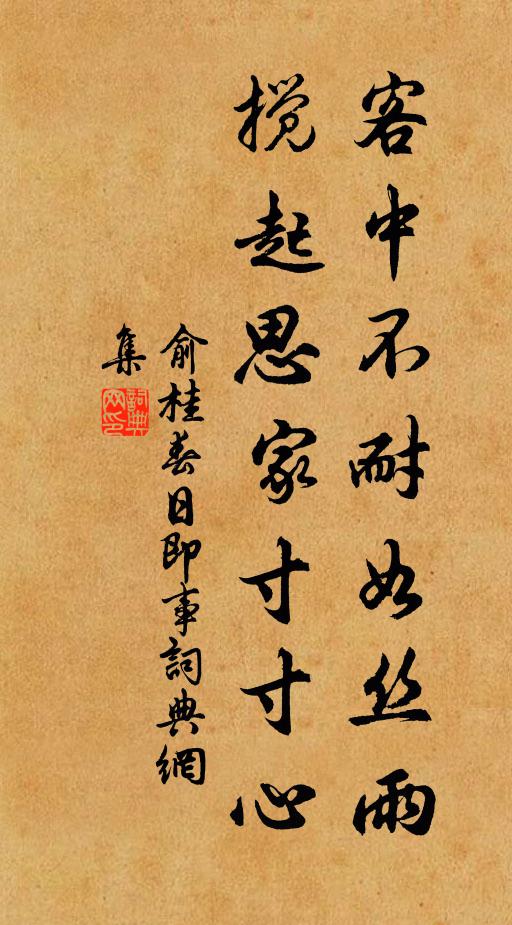 客中不耐如丝雨
搅起思家寸寸心
俞桂春日即事詞典網
集
詞典
网印